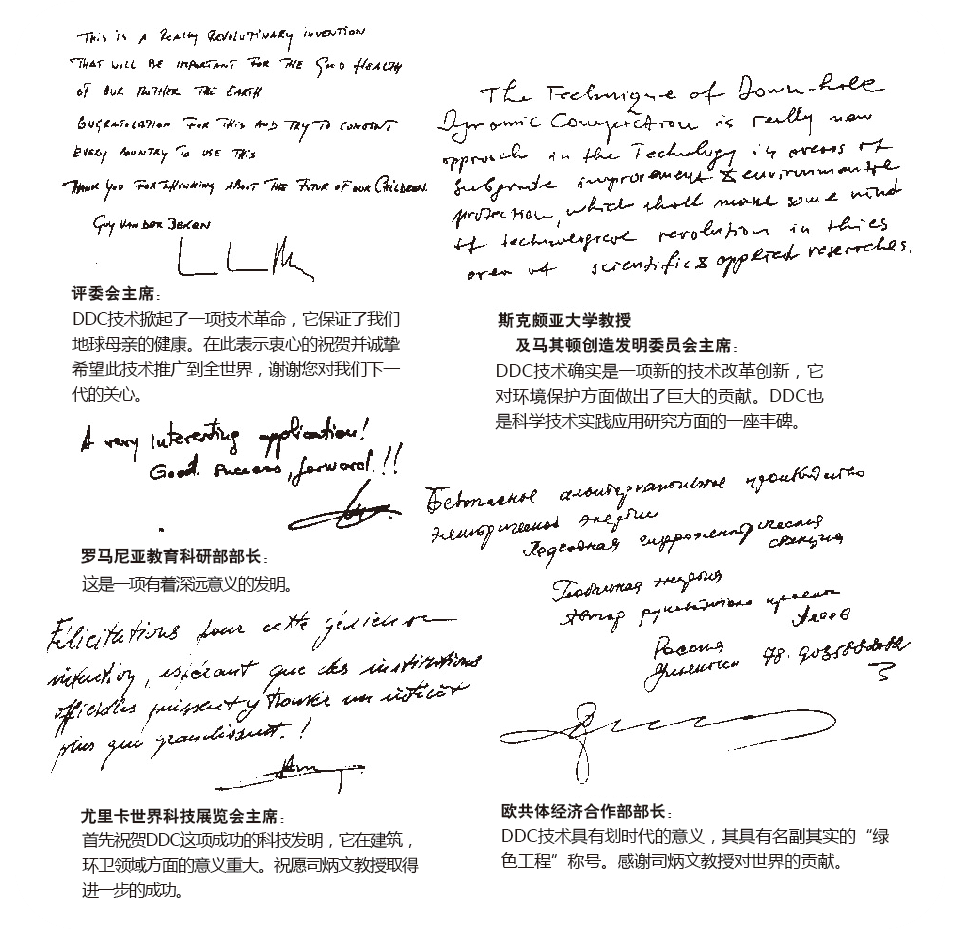 THIS IS A REALLY REVOLUTIONARY INVENTION
THAT WILL BE IMPORTANT FOR THE GOOD HEALTH
OF OUR MOTHER THE EARTH
FOR THIS AND TRY TO
EVERY COUNTRY TO USE THIS
THANK YOU FOR THINKING ABOUT THE FUTUR OF OUR CHILDREN.
GUY VAN DER BEKEN
评委会主席：
DDC技术掀起了一项技术革命，它保证了我们
地球母亲的健康。在此表示衷心的祝贺并诚挚
希望此技术推广到全世界，谢谢您对我们下一
代的关心。
The Technique of Down-hole
Dynamic Compaction is really new
approach in the Technology in areas of
subgrade improvement & environmental
protection, which shall make some kind
of technological revolution in this
area of scientific & applied researches.
斯克颇亚大学教授
及马其顿创造发明委员会主席：
DDC技术确实是一项新的技术改革创新，它
对环境保护方面做出了巨大的贡献。DDC也
是科学技术实践应用研究方面的一座丰碑。
A very interesting application!
Good success, forward!!!
罗马尼亚教育科研部部长：
这是一项有着深远意义的发明。
Félicitations pour cette
espérant que des institutions
officielles puissent y trouver un intérêt
plus que grandissant.!
尤里卡世界科技展览会主席：
首先祝贺DDC这项成功的科技发明，它在建筑，
环卫领域方面的意义重大。祝愿司炳文教授取得
进一步的成功。
энергии
гидроэлектрическая
станция
Глобальная энергия
Автор
Россия
欧共体经济合作部部长：
DDC技术具有划时代的意义，其具有名副其实的“绿
色工程”称号。感谢司炳文教授对世界的贡献。